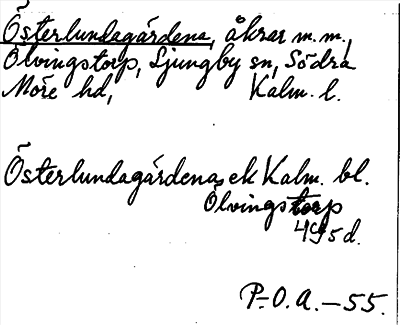 Österlundagärdena, åkrar m.m.,
Ölvingstorp, Ljungby sn, Södra
Möre hd, Kalm. l.
Österlundagärdena, ek Kalm. bl.
Ölvingstorp
495 d.
P.-O. A. - 55.